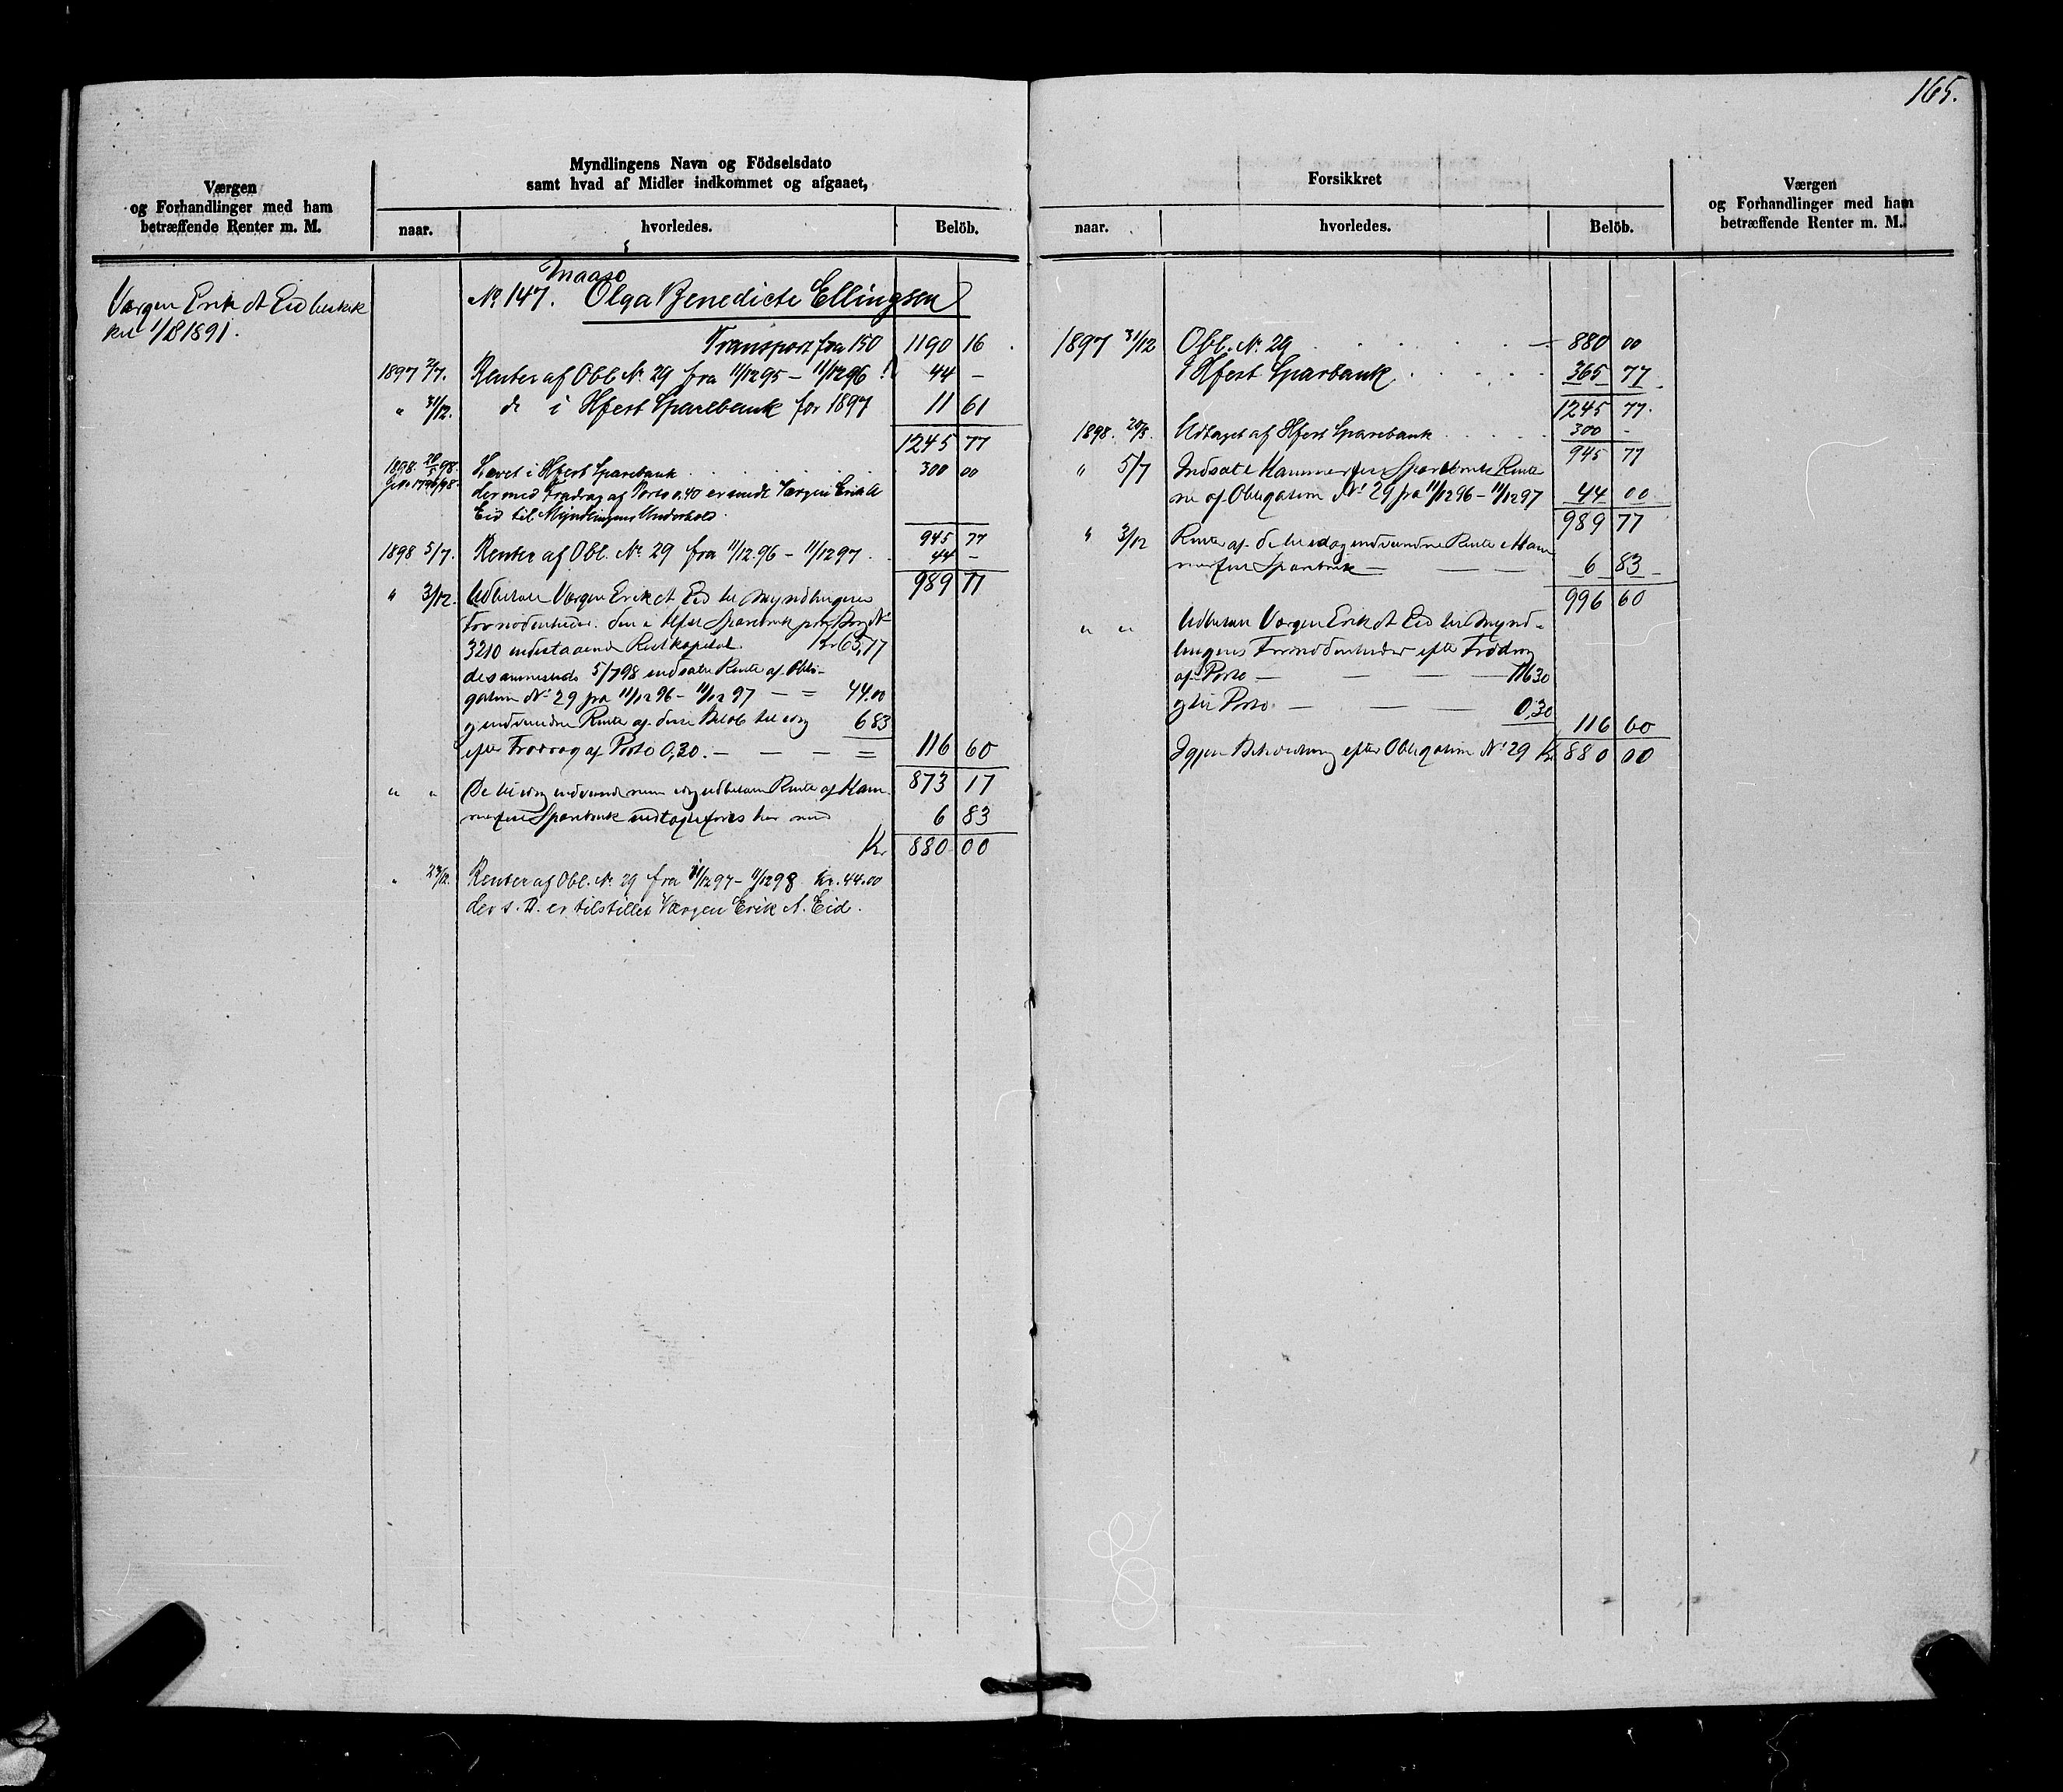 165.
Værgen
og Forhandlinger med ham
betræffende Renter m. M.
Myndlingens Navn og Födselsdato
samt hvad af Midler indkommet og afgaaet,
naar.
hvorledes.
Belöb.
Værgen Erik A Eid beskik
ket 1/8 1891.
Maasø
No 147. Olga Benedicte Ellingsen
Transport fra 150 1190 16
1897 2/7. Renter af Obl No 29 fra 11/12 95 - 11/12 96 44 -
" 31/12. do i Hfest Sparebank for 1897 11 61
1245 77
1898 20/5 98. Hævet i Hfest Sparebank 300 00
der med Fradrag af Porto 0.40 er sendt Værgen Erik A
Eid til Myndlingens Underhold.
945 77
1898 5/7. Renter af Obl. No 29 fra 11/12 96 - 11/12 97 44 -
989 77
" 3/12. Udbetalt Værgen Erik A Eid til Myndlingens
Fornødenheder: den i Hfest Sparebank paa Bog No
3210 indestaaende Restkapital Kr 65,77
desammesteds 5/7 98 indsatte Rente af Obli-
gation No 29 fra 11/12 96 - 11/12 97 - = 44.00
og indvundne Rente af disse Beløb til idag 6 83
efter Fradrag af Porto 0,30. - - - = 116 60
873 17
" " De til idag indvundne og udbetalte Renter af Ham
merfest Sparebank indtægtsføres her med 6 83
Kr 880 00
" 24/12. Renter af Obl. No 29 fra 11/12 97 - 11/12 98 Kr. 44.00
der s. D. er tilstillet Værgen Erik A. Eid.
Forsikkret
naar.
hvorledes.
Belöb.
Værgen
og Forhandlinger med ham
betræffende Renter m. M.
1897 31/12 Obl. No 29 880 00
i Hfest Sparbank 365 77
1245 77
1898. 20/5. Udtaget af Hfest Sparebank 300 -
945 77
" 5/7 Indsat i Hammerfest Sparebank Rente
ne af Obligation No 29 fra 11/12 96 - 11/12 97 44 00
989 77
" 3/12 Rente af de til idag indvundne Rente i Ham
merfest Sparebank - - - 6 83
996 60
" " Udbetalt Værgen Erik A Eid til Mynd-
lingens Fornødenheder efter Fradrag
af Porto - - - - 116 30
og til Porto - - - 0,30 116 60
Igjen Beholdning efter Obligation No 29 Kr 880 00